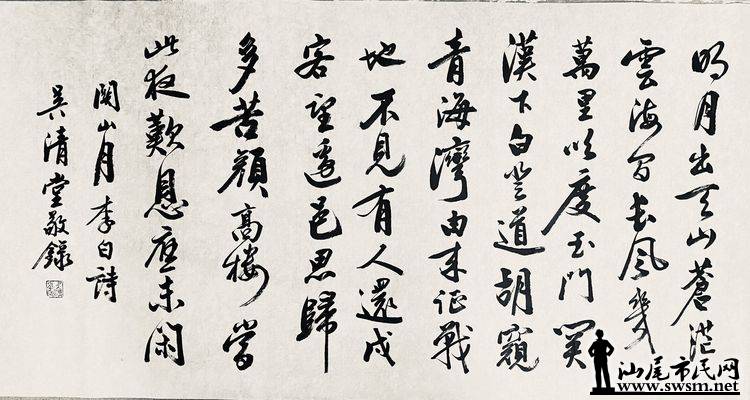 明月出天山蒼茫
雲海間長風幾
萬里吹度玉門關
漢下白登道胡窺
青海灣由來征戰
地不見有人還戍
客望邊邑思歸
多苦顏高樓當
此夜歎息應未閑
關山月李白詩
吳清堂敬錄
汕尾市民网
www.swsm.net